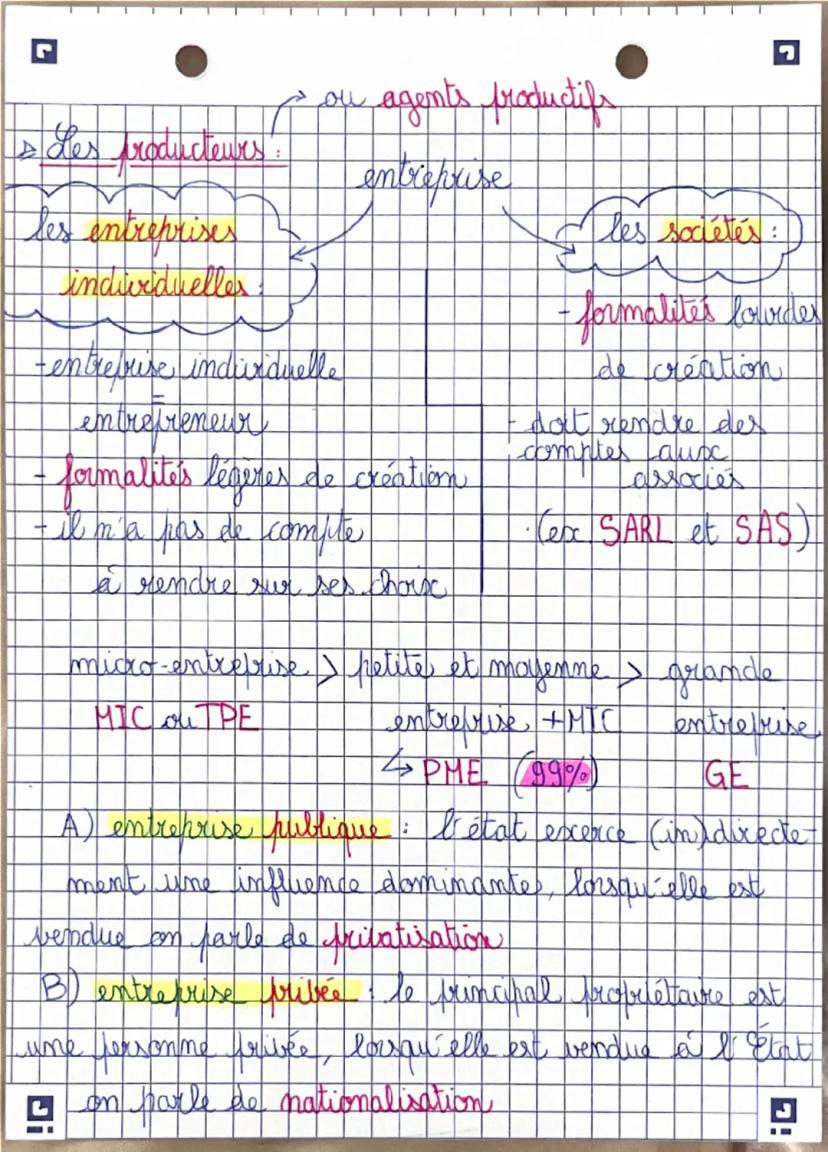 ou agents productifs
Les producteurs :
entreprise
les entreprises
individuelles :
- entreprise individuelle
=
entrepreneur
- formalités légères de création
- il n'a pas de compte
à rendre sur ses choix
les sociétés :
- formalités lourdes
de création
- doit rendre des
comptes aux
associés
(ex. SARL et SAS)
micro-entreprise > petite et moyenne > grande
MIC ou TPE entreprise + MIC entreprise
↳ PME (99%) GE
A) entreprise publique : l'état excerce (in)directe-
ment une influence dominantes, lorsqu'elle est
vendue on parle de privatisation
B) entreprise privée : le principal propriétaire est
une personne privée, lorsqu'elle est vendue à l'État
on parle de nationalisation